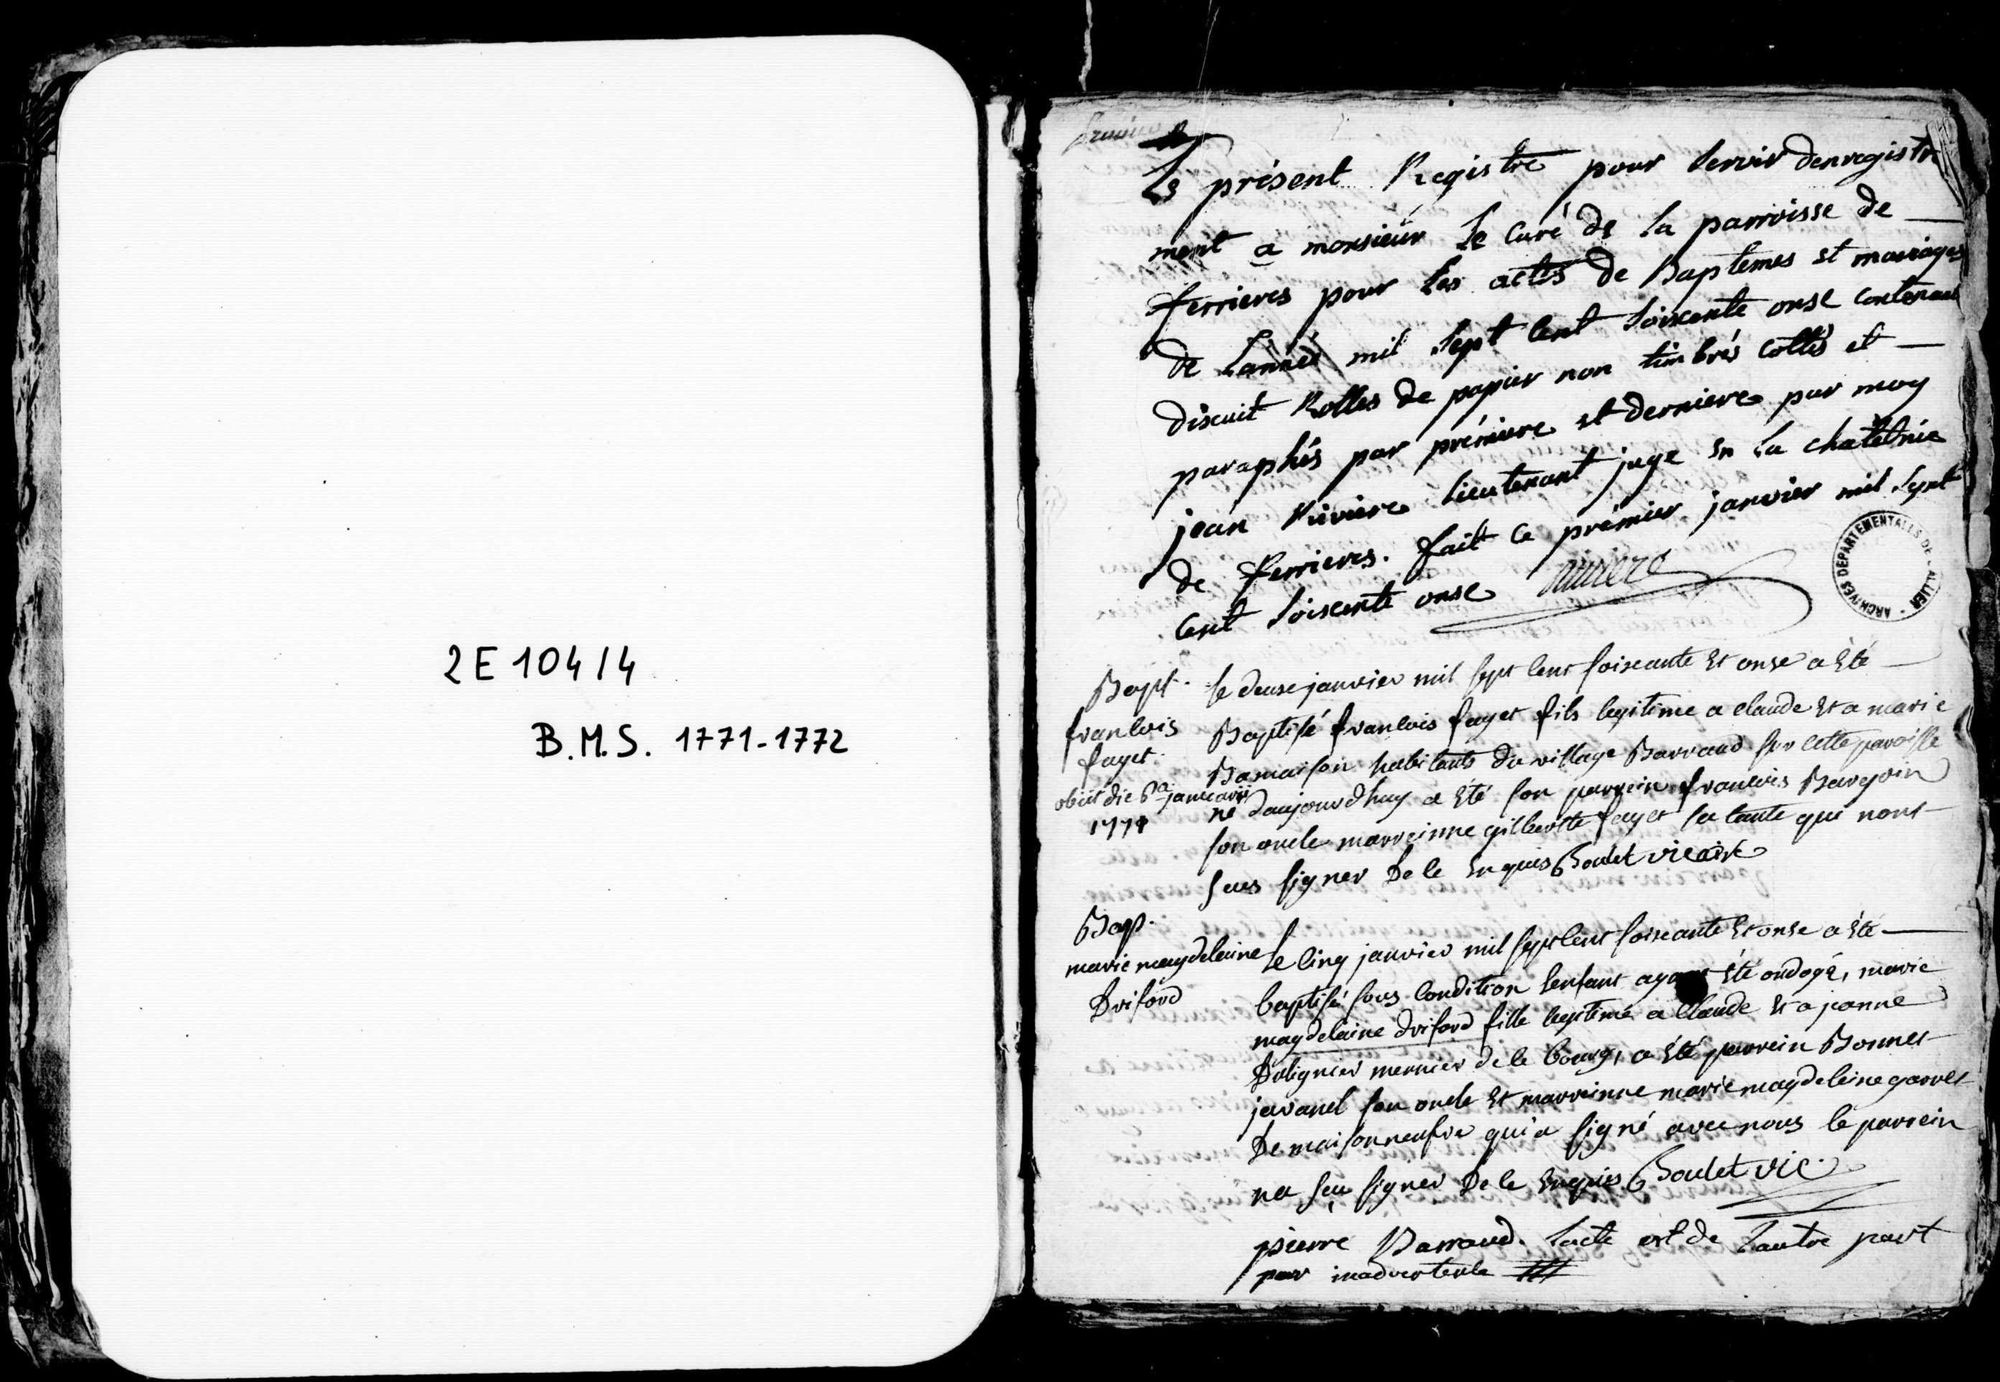 2 E 104/4
B.M.S. 1771-1772
Le présent Registre pour servir denregistre
ment a monsieur Le Curé de La parroisse de
ferrieres pour Les actes de Baptemes et mariages
de Lannéé mil sept Cent soixente onse Contenant
dixcuit Rolles de papier non timbrés Cottés et
paraphés par prémiere et derniere par moy
jean Riviere Lieutenant juge en La chatelnie
de ferrieres. fait Ce prémier janvier mil sept
Cent soixente onse Riviere
ARCHIVES DEPARTEMENTALES DE L'ALLIER
Bapt.
francois
fayet.
obiit die 6a januarii
1771
le deuse janvier mil sept cent soixante et onse a été
Baptisé francois fayet fils legitime a claude et a marie
Damaison habitants du village Barraud sur cette paroisse
né daujourdhuy a été son parrein francois Bargoin
son oncle marreinne gilberte fayet sa tante qui nont
sceus signer de le enquis Boulet vicaire
Bap.
marie magdelaine
Driford
le cinq janvier mil sept cent soixante et onse a été
baptisé sous condition lenfant ayant été ondoyé, marie
magdelaine driford fille legitime a Claude et a jeanne
meunier de le bourg, a été parrein Bonnet
javanel son oncle et marreinne marie magdeleine garret
de maisonneufve qui a signé avec nous le parrein
na sçu signer de le enquis Boulet vic.
pierre Barraud. Lacte est de Lautre part
par inadvertence